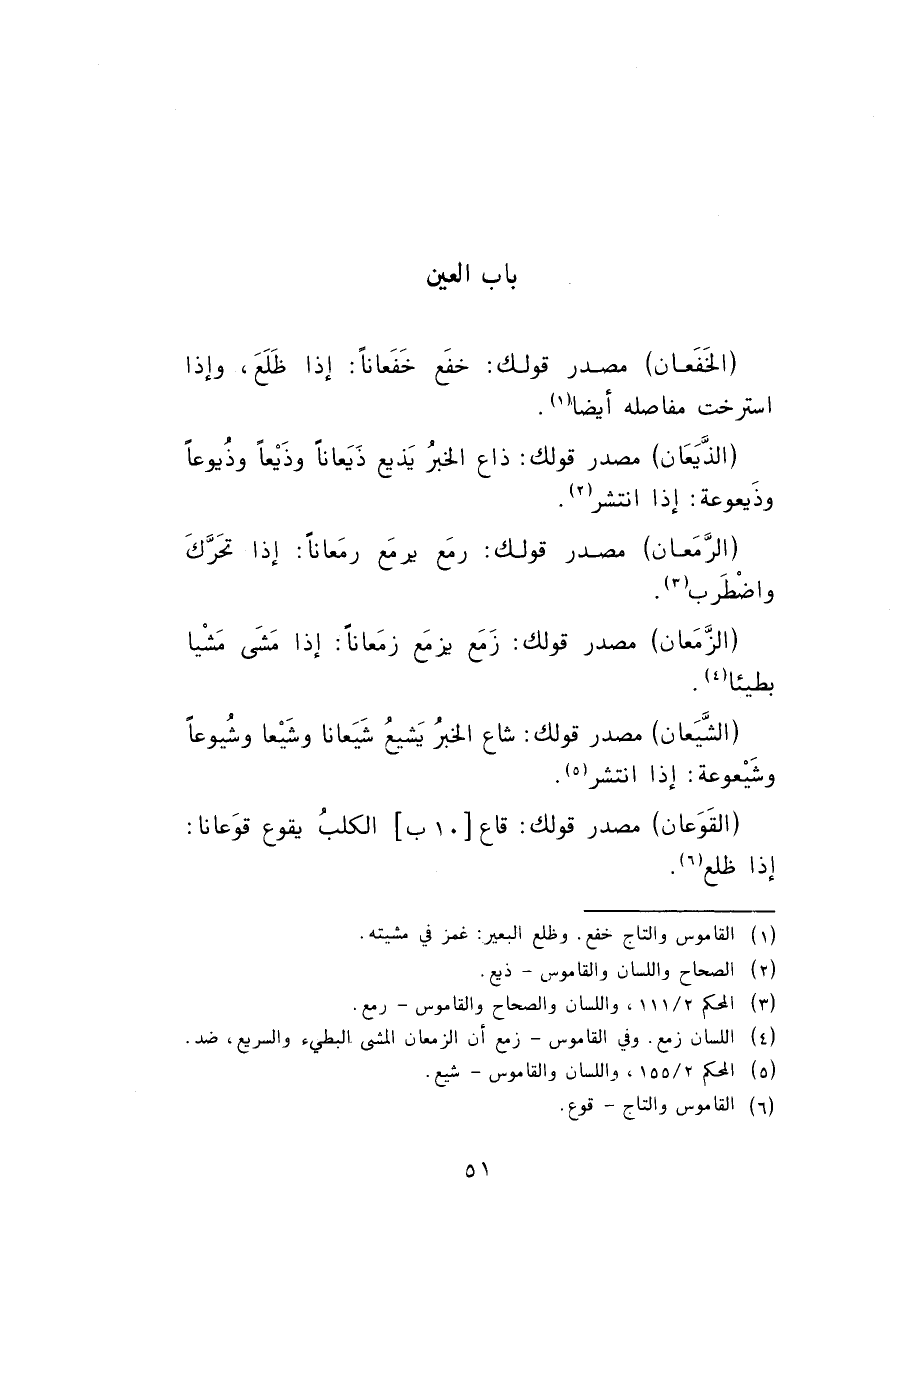 باب العين
(الخَفَعان) مصدر قولك: خفَع خَفَعاناً: إذا ظَلَعَ، وإذا
استرخت مفاصله أيضا(١).
(الذَّيَعَان) مصدر قولك: ذاع الخبرُ يَذيع ذَيَعاناً وذَيْعاً وذُيوعاً
وذَيعوعة: إذا انتشر(٢).
(الرَّمَعان) مصدر قولك: رمَع يرمَع رمَعاناً: إذا تحَرَّكَ
واضْطَرب(٣).
(الزَّمَعان) مصدر قولك: زَمَع يزمَع زمَعاناً: إذا مَشَى مَشْيا
بطيئا(٤).
(الشَّيَعان) مصدر قولك: شاع الخبرُ يَشيعُ شَيَعانا وشَيْعا وشُيوعاً
وشَيْعوعة: إذا انتشر(٥).
(القَوَعان) مصدر قولك: قاع [١٠ ب] الكلبُ يقوع قوَعانا:
إذا ظلع(٦).
(١) القاموس والتاج خفع. وظلع البعير: غمز في مشيته.
(٢) الصحاح واللسان والقاموس – ذيع.
(٣) المحكم ١١١/٢، واللسان والصحاح والقاموس – رمع.
(٤) اللسان زمع. وفي القاموس – زمع أن الزمعان المشى البطيء والسريع، ضد.
(٥) المحكم ١٥٥/٢، واللسان والقاموس – شيع.
(٦) القاموس والتاج – قوع.
٥١